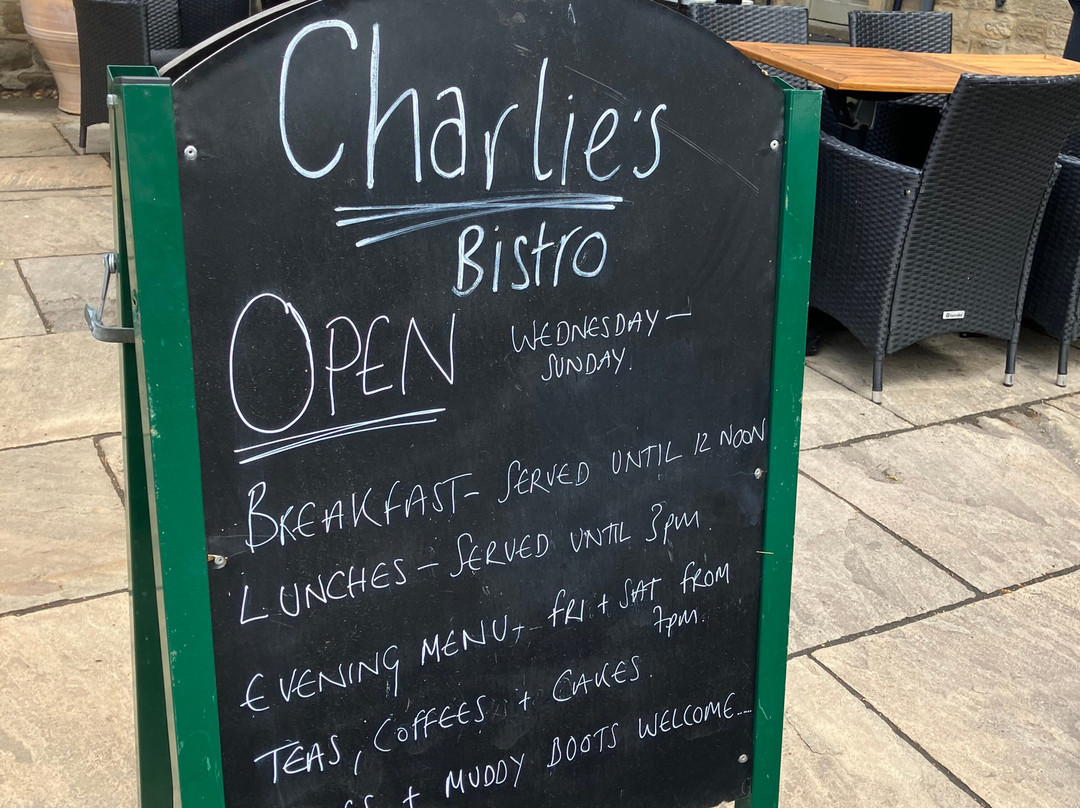 Charlie's
Bistro
OPEN WEDNESDAY -
SUNDAY.
BREAKFAST - SERVED UNTIL 12 NOON
LUNCHES - SERVED UNTIL 3pm.
EVENING MENU, - FRI + SAT FROM
7pm.
TEAS, COFFEES + CAKES.
+ MUDDY BOOTS WELCOME....